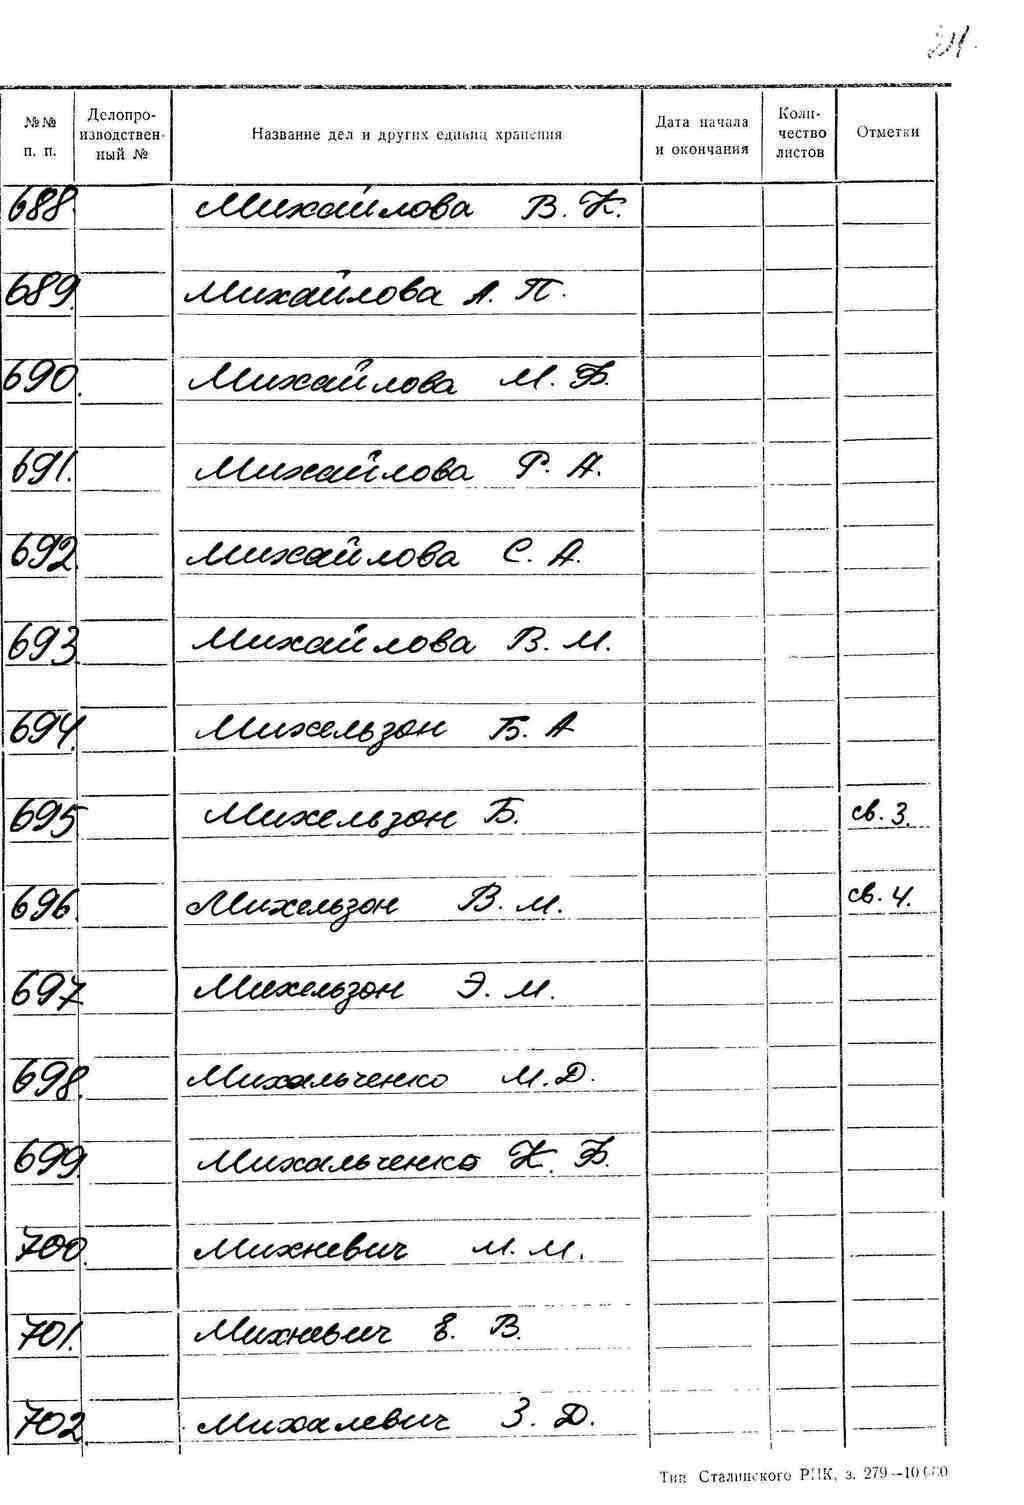 №№ п. п. Делопро-изводствен-ный № Название дел и других единиц хранения Дата начала и окончания Коли-чество листов Отметки
688. Михайлова В. К.
689. Михайлова А. П.
690. Михайлова М. Ф.
691. Михайлова Р. А.
692. Михайлова С. А.
693. Михайлова В. М.
694. Михельзон Б. А
695 Михельзон Б. св. 3.
696. Михельзон В. М. св. 4.
697 Михельзон Э. М.
698. Михальченко М. Д.
699. Михальченко К. Ф.
700. Михневич М. М.
701. Михневич Е. В.
702 Михалевич З. Д.
Тип Сталинского РИК, з. 279—10